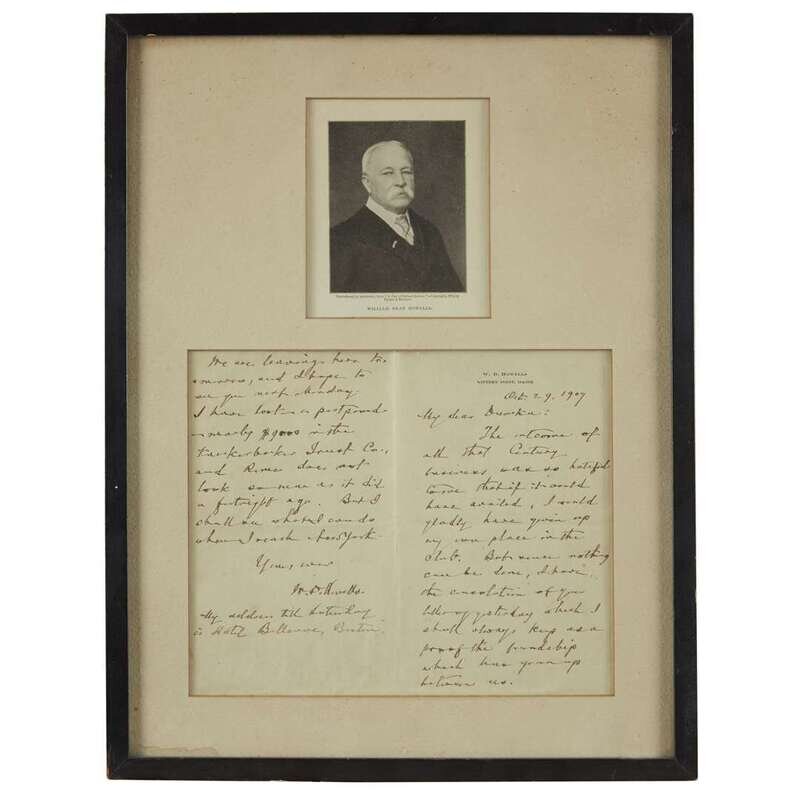 WILLIAM DEAN HOWELLS.
W. D. HOWELLS
KITTERY POINT, MAINE
Oct. 29, 1907
My dear
The outcome of
all that Century
business was so hateful
to me that if it would
have availed, I would
gladly have given up
my own place in the
Club. But since nothing
can be done, I have
the consolation of your
letter of yesterday which I
shall always keep as a
proof of the friendship
which has grown up
between us.
We are leaving here to-
morrow, and I hope to
see you next Monday.
I have lost or postponed
nearly $9000 in the
Knickerbocker Trust Co.,
and Rome does not
look so near as it did
a fortnight ago. But I
shall see what I can do
when I reach New York.
Yours ever
W. D. Howells.
My address till Saturday
is Hotel Bellevue, Boston.